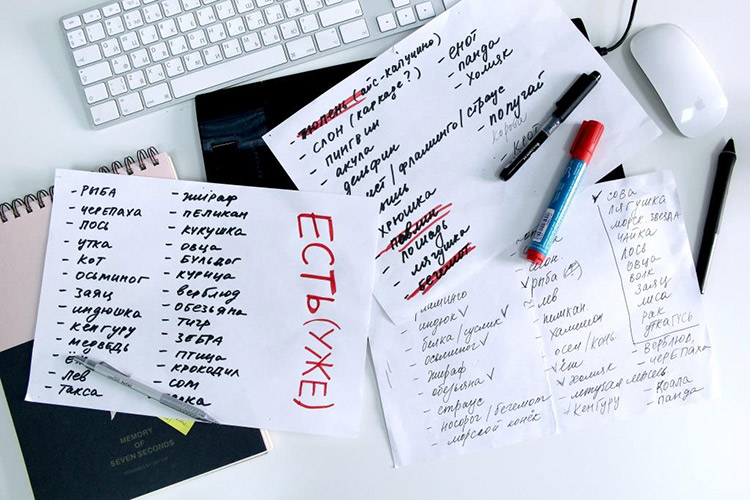 - РЫБА
- ЧЕРЕПАХА
- ЛОСЬ
- УТКА
- КОТ
- ОСЬМИНОГ
- ЗАЯЦ
- ИНДЮШКА
- КЕНГУРУ
- МЕДВЕДЬ
- ЛЕВ
- ТАКСА
- ЖИРАФ
- ПЕЛИКАН
- КУКУШКА
- ОВЦА
- БУЛЬДОГ
- КУРИЦА
- ВЕРБЛЮД
- ОБЕЗЬЯНА
- ТИГР
- ЗЕБРА
- ПТИЦА
- КРОКОДИЛ
- СОМ
ЕСТЬ (УЖЕ)
- ТЮЛЕНЬ (АЙС-КАПУЧИНО)
- СЛОН (КАРКАДЕ?)
- ПИНГВИН
- АКУЛА
- ДЕЛЬФИН
/ФЛАМИНГО/СТРАУС
- ХРЮШКА
- ПАВЛИН
- ЛОШАДЬ
- ЛЯГУШКА
- БЕГЕМОТ
- ЕНОТ
- ПАНДА
- ХОМЯК
- ПОПУГАЙ
КОРОВА
- КРОТ
- индюк/ ✓
- белка/суслик ✓
- осьминог ✓
- жираф
- обезьяна ✓
- страус
- носорог/бегемот
- морской конёк
- слон
- рыба
- лев
- пеликан
- хамелеон
- осел/конь
- хомяк
- кенгуру
✓ - СОВА
- ЛЯГУШКА
- МОРСК. ЗВЕЗДА
- ЧАЙКА
- ЛОСЬ
- ОВЦА
- ВОЛК
- ЗАЯЦ
- ЛИСА
- РАК
- УТКА ГУСЬ
- ВЕРБЛЮД,
- ЧЕРЕПАХА
- КОАЛА
- ПАНДА
MEMORY
OF
SEVEN SECONDS